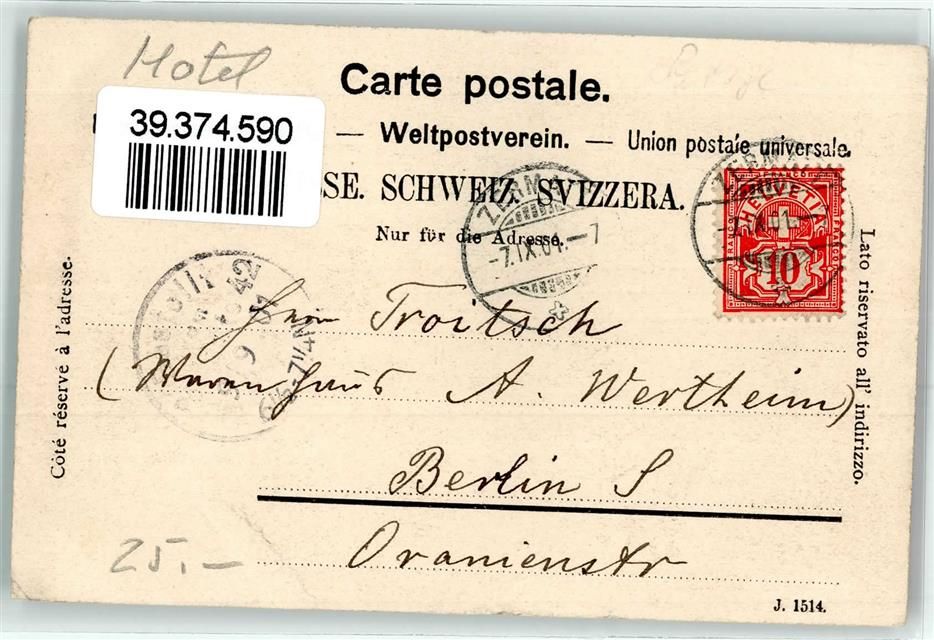 Hotel
Carte postale.
39.374.590
— Weltpostverein. — Union postale universale.
SSE. SCHWEIZ. SVIZZERA.
Nur für die Adresse.
ZERMA
-7.IX.01.-7
ZERMA
-7.IX.01.
HELVETIA
FRANCO
10
Côté réservé à l'adresse.
Lato riservato all' indirizzo.
Herrn Troitsch
(Warenhaus A. Wertheim)
Berlin S
Oranienstr
25.—
J. 1514.